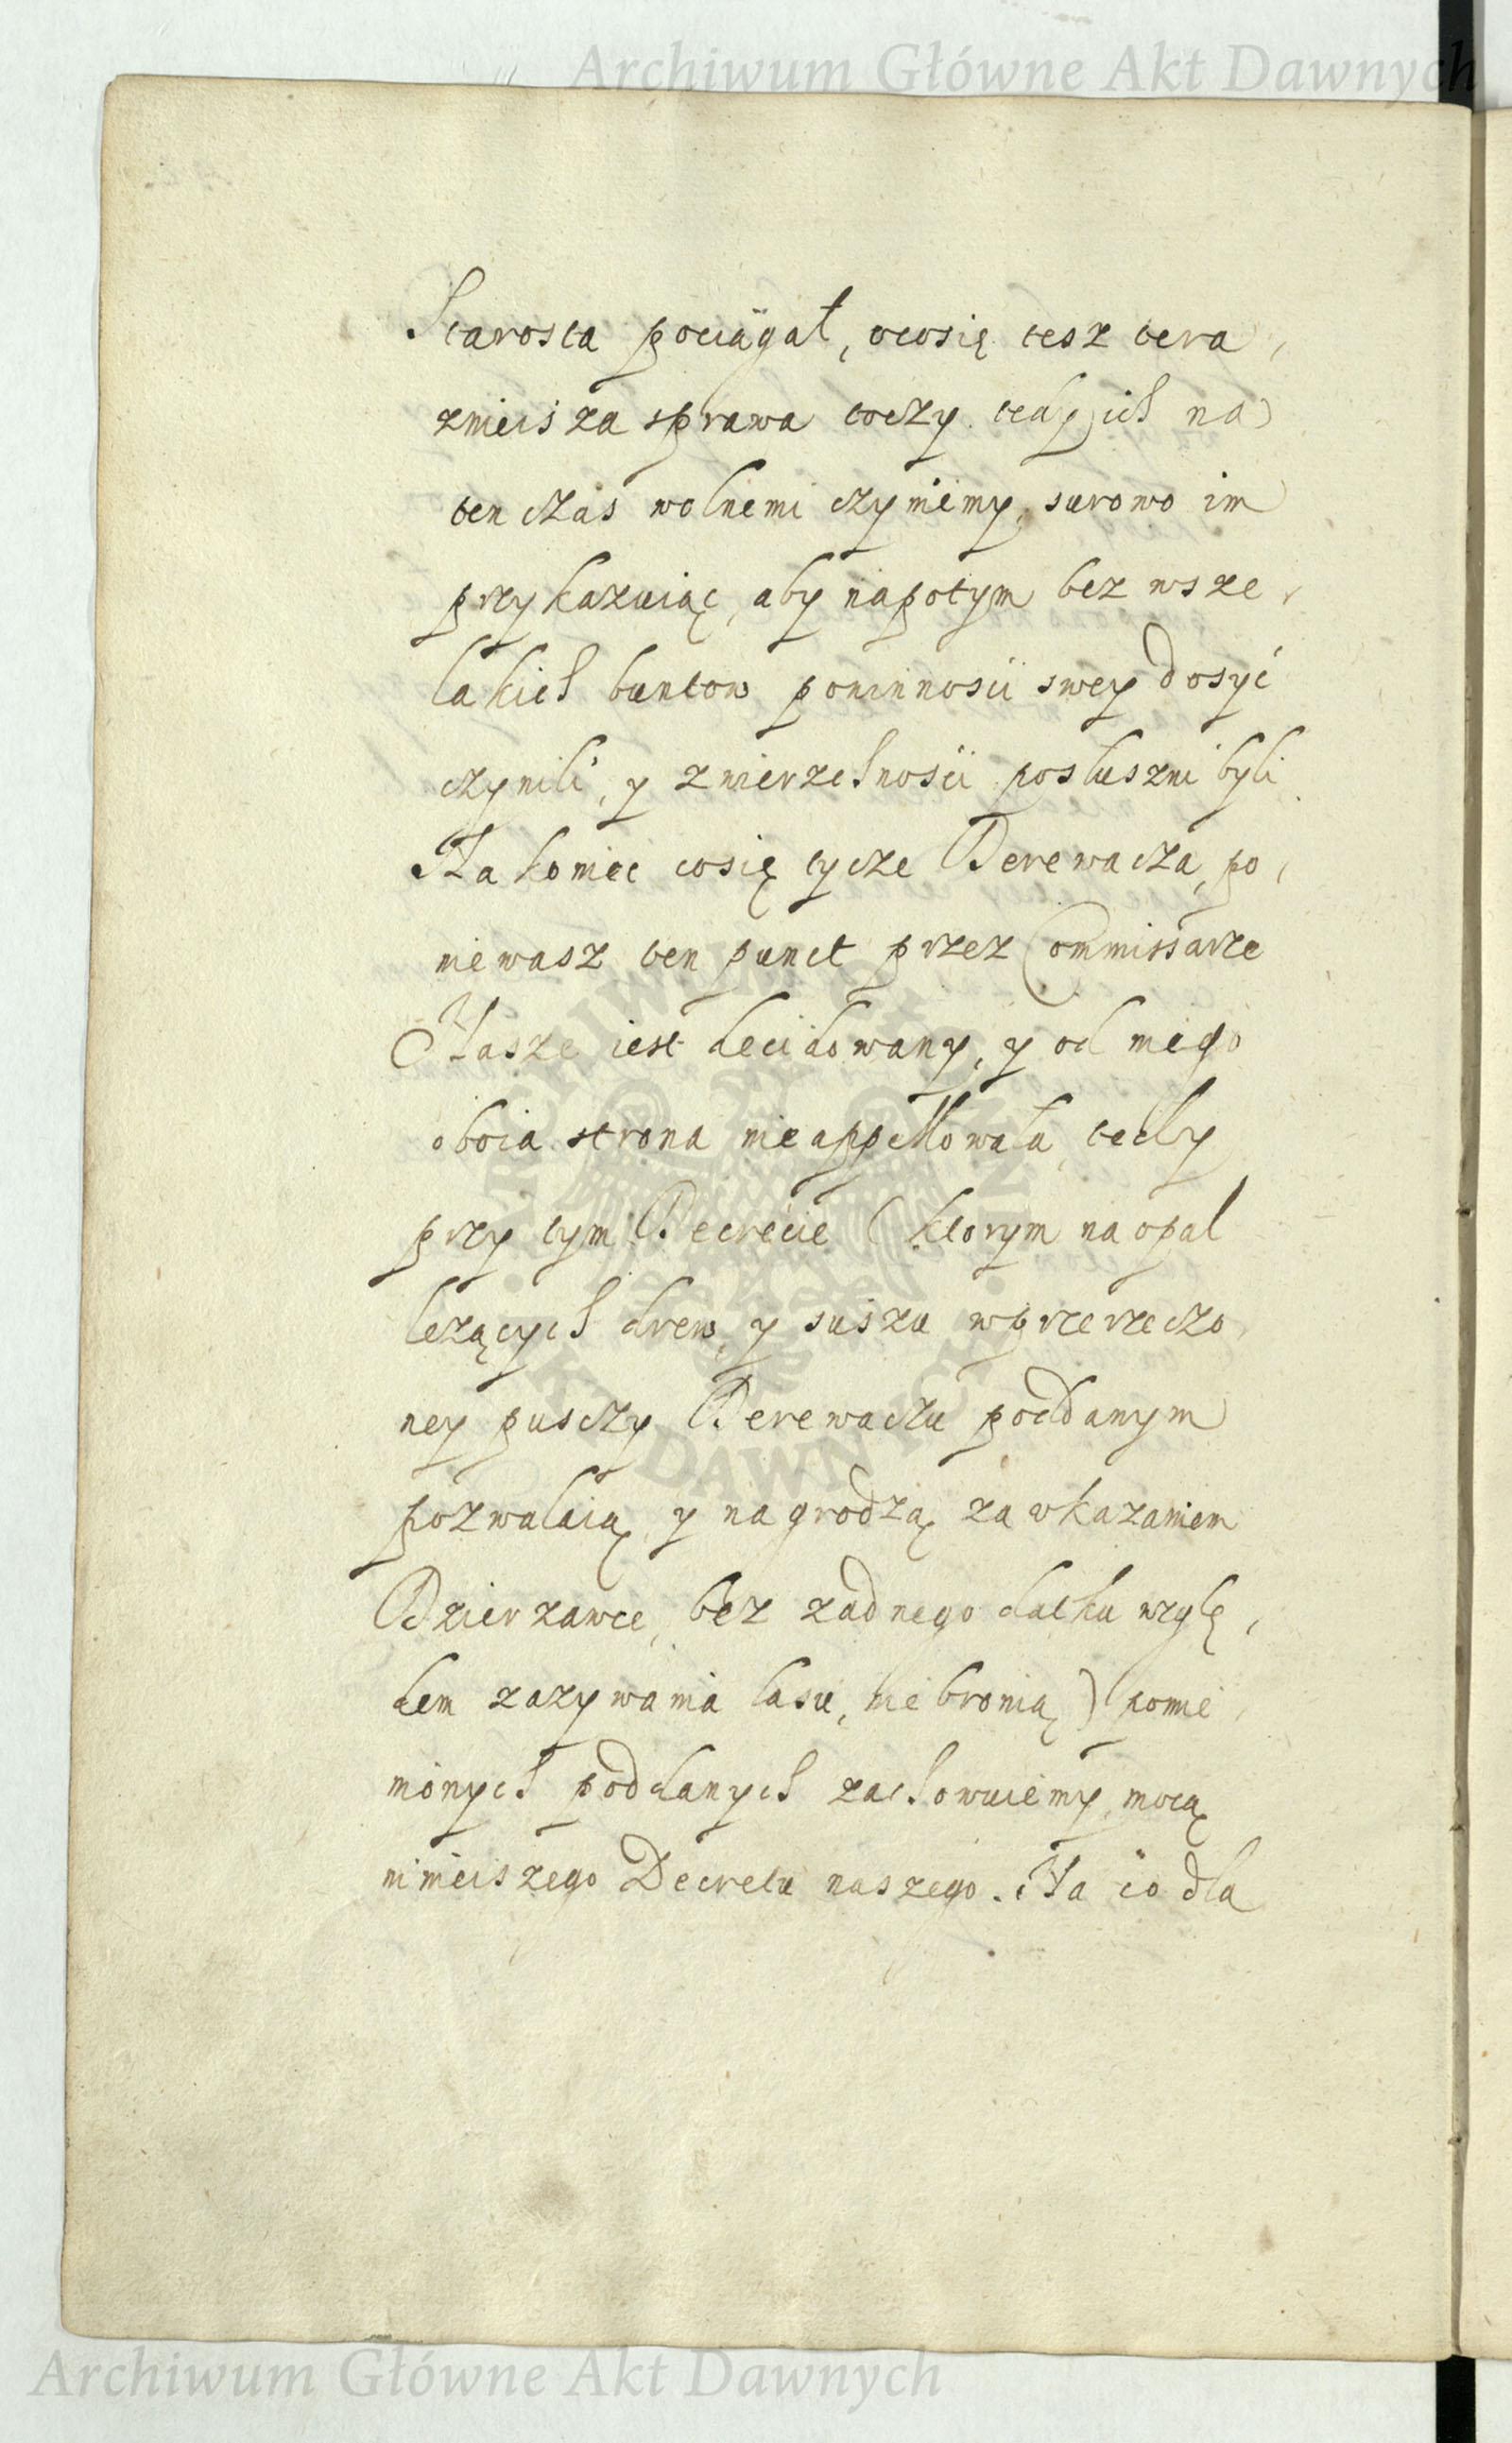 Archiwum Główne Akt Dawnych
Starosta pociągał, ocosię tesz tera,
znieisza sprawa toczy. tedy ich na
ten czas wolnemi czyniemy, surowo im
przykazuiąc, aby napotym bez wsze,
lakich buntow powinnosci swey dosyć
czynili, y zwierzchnosci posłuszni byli.
Na koniec cosię tycze Derewacza, po,
niewasz ten punct przez Commissarze
Nasze iest decidowany, y od niego
oboia strona nie appellowała, tedy
przy tym Decrecie (ktorym na opał
leżących drew, y suszu wprzerzeczo,
ney pusczy Derewaczu poddanym
pozwalaią, y nagrodzą, za vkazaniem
Dzierzawce, bez zadnego datku wzglę,
dem zazywania lasu, nie bronią) pomie,
nionych poddanych zachowuiemy, mocą
ninieiszego Decretu naszego. Na co dla
ARCHIWUM GŁÓWNE AKT DAWNYCH
Archiwum Główne Akt Dawnych